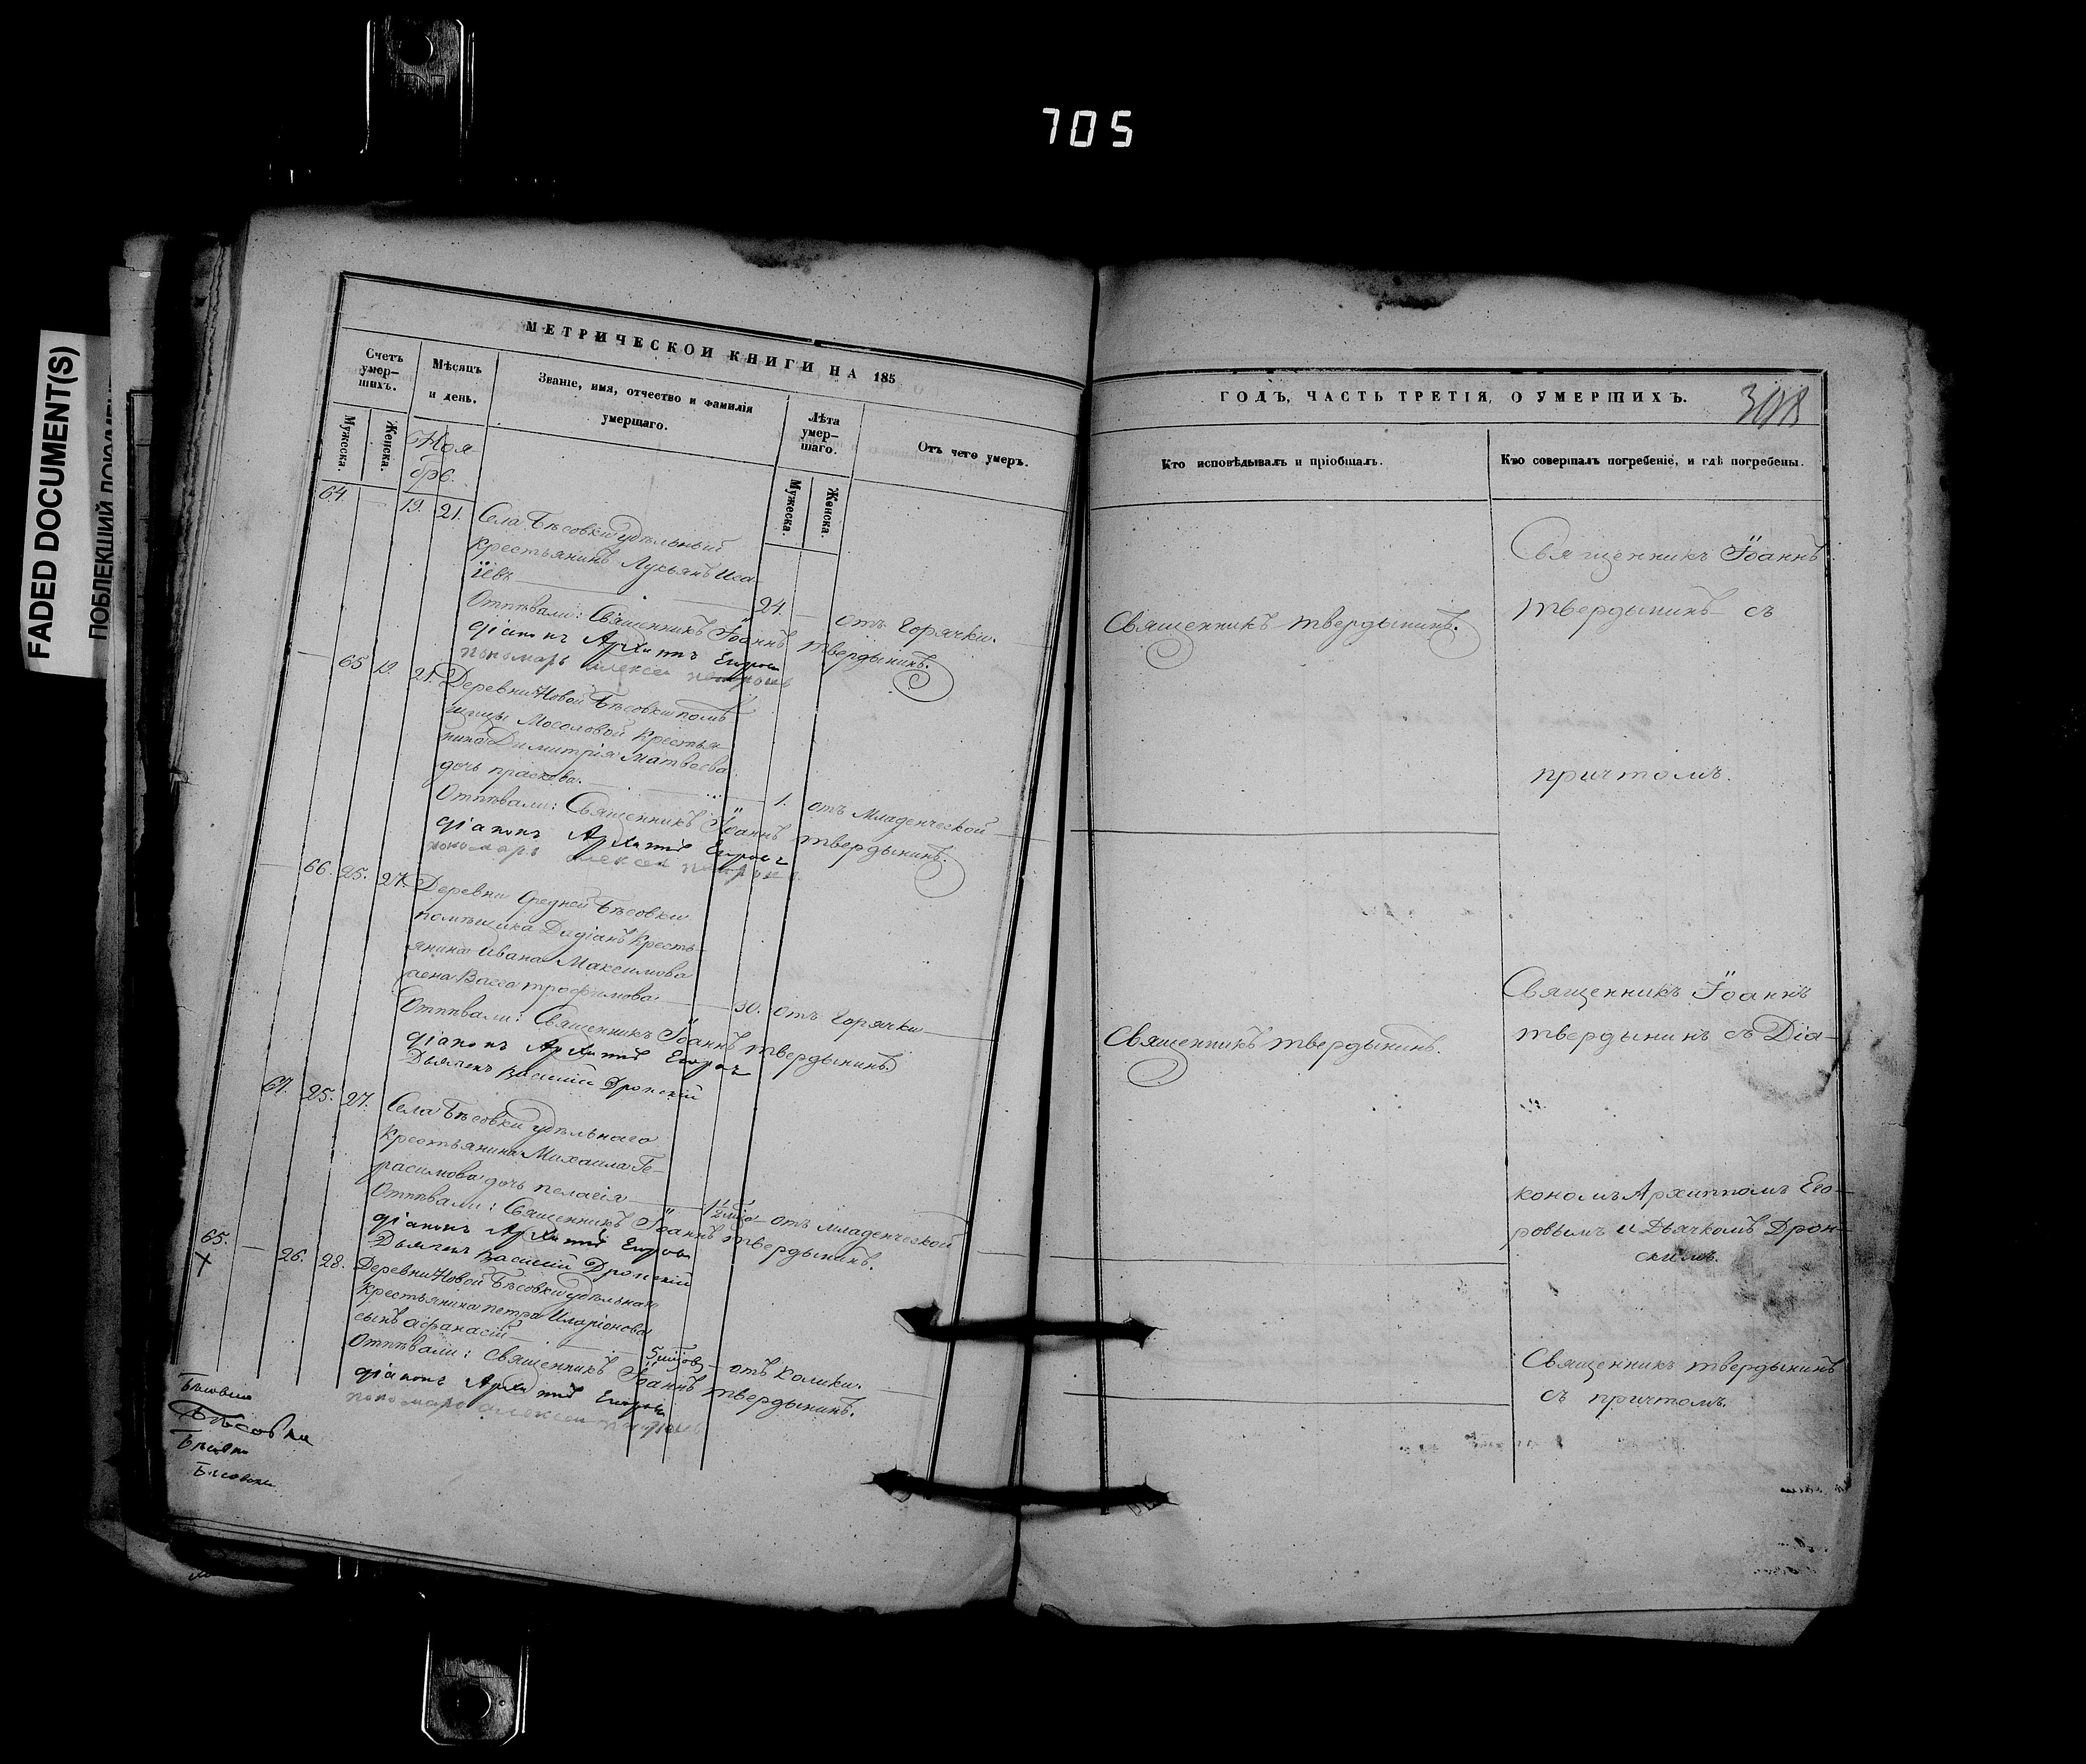 705
FADED DOCUMENT(S)
ПОБЛЕКШИЙ
МЕТРИЧЕСКОЙ КНИГИ НА 185
Счетъ умер–шихъ.
Мужеска.
Женска.
Мѣсяцъ и день.
Званіе, имя, отчество и фамилія умершаго.
Лѣта умер–шаго.
Мужеска.
Женска.
Отъ чего умеръ.
Ноя-
бре.
64. 19. 21. Села Бѣсовки удѣльный
крестьянинъ Лукьянъ Иса-
іевъ 24. отъ Горячки.
Отпѣвали: Священникъ Іоаннъ Твердынинъ.
діаконъ Архиппъ Егоровъ
пономарь Алексей Петровъ
65 19. 21. Деревни Новой Бѣсовки помѣ-
щицы Мосоловой крестья-
нина Димитрія Матвеева
дочь Праскева. 1. отъ Младенческой
Отпѣвали: Священникъ Іоаннъ Твердынинъ.
діаконъ Архиппъ Егоровъ
пономарь Алексей Петровъ
66. 25. 27. Деревни Средней Бѣсовки
помѣщика Дадіанъ кресть-
янина Ивана Максимова
жена Васса Трофимова 30. отъ Горячки
Отпѣвали: Священникъ Іоаннъ Твердынинъ
діаконъ Архиппъ Егоровъ
Дьячекъ Василій Дронскій
67. 25. 27. Села Бѣсовки удѣльнаго
крестьянина Михаила Ге-
расимова дочь Пелагія 1½ отъ младенческой
Отпѣвали: Священникъ Іоаннъ Твердынинъ.
діаконъ Архиппъ Егоровъ
Дьячекъ Василій Дронскій
65. 26. 28. Деревни Новой Бѣсовки удѣльнаго
X
крестьянина Петра Иларіонова
сынъ Афанасій 5 отъ колики.
Отпѣвали: Священникъ Іоаннъ Твердынинъ.
діаконъ Архиппъ Егоровъ
пономарь Алексей Петровъ
Бѣсовка
ГОДЪ, ЧАСТЬ ТРЕТІЯ, О УМЕРШИХЪ.
Кто исповѣдывалъ и пріобщалъ.
Кто совершалъ погребеніе, и гдѣ погребены.
Священникъ Твердынинъ.
Священникъ Іоаннъ
Твердынинъ съ
причтомъ.
Священникъ Твердынинъ.
Священникъ Іоаннъ
Твердынинъ съ Діа-
кономъ Архиппомъ Его-
ровымъ и Дьячкомъ Дрон-
скимъ.
Священникъ Твердынинъ
съ причтомъ.